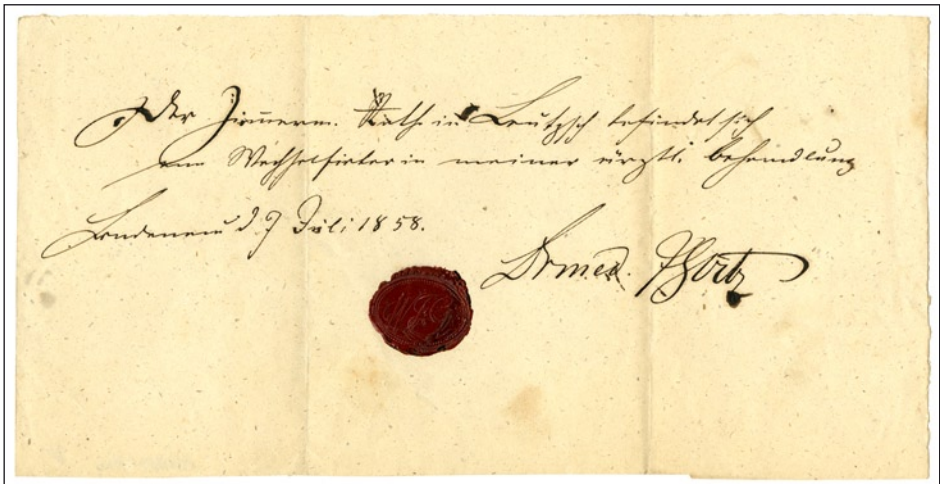 Der Zimmerm. Rath in Leutzsch befindet sich
am Wechselfieber in meiner ärztl. Behandlung
Lindenau d. 7 Juli 1858.
Dr med.